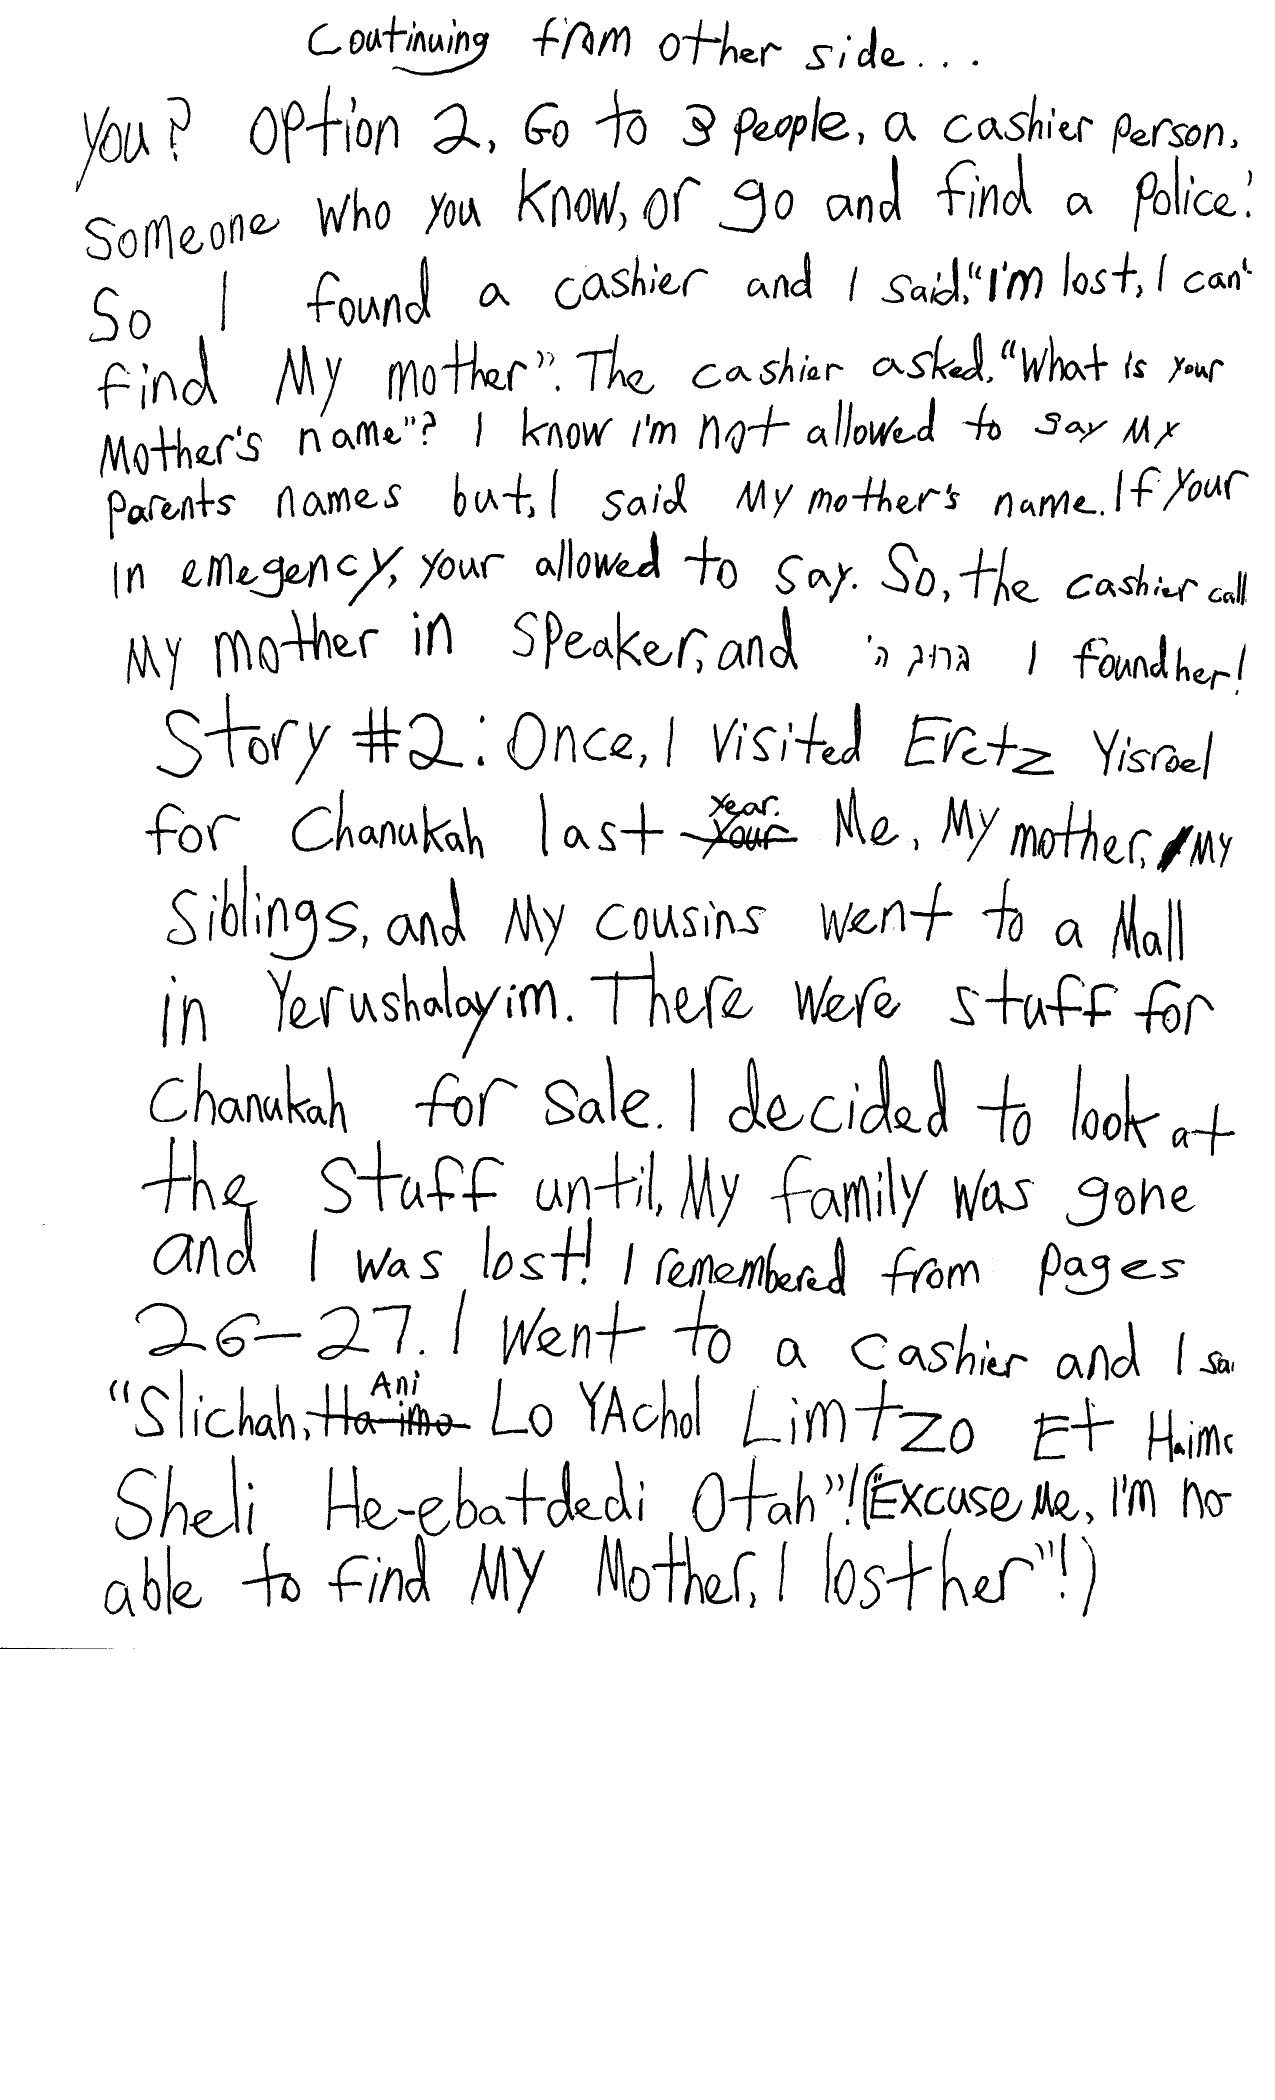 Coutinuing from other side...
you? Option 2, Go to 3 people, a cashier person,
someone who you know, or go and find a police!
So I found a cashier and I said, "I'm lost, I can't
find My mother". The cashier asked, "What is your
Mother's name"? I know i'm not allowed to say My
parents names but, I said My mother's name. If your
in emegency, your allowed to say. So, the cashier call
My mother in speaker, and ברוך ה' I found her!
Story #2: Once, I visited Eretz Yisroel
for Chanukah last year. Me, My mother, My
siblings, and My cousins went to a Mall
in Yerushalayim. There were stuff for
Chanukah for sale. I decided to look at
the stuff until, My family was gone
and I was lost! I remembered from pages
26-27. I went to a cashier and I
"Slichah, Ani Lo YAchol Limtzo Et
Sheli He-ebatdedi Otah"! ("Excuse Me, I'm
able to find MY Mother, I lost her"!)